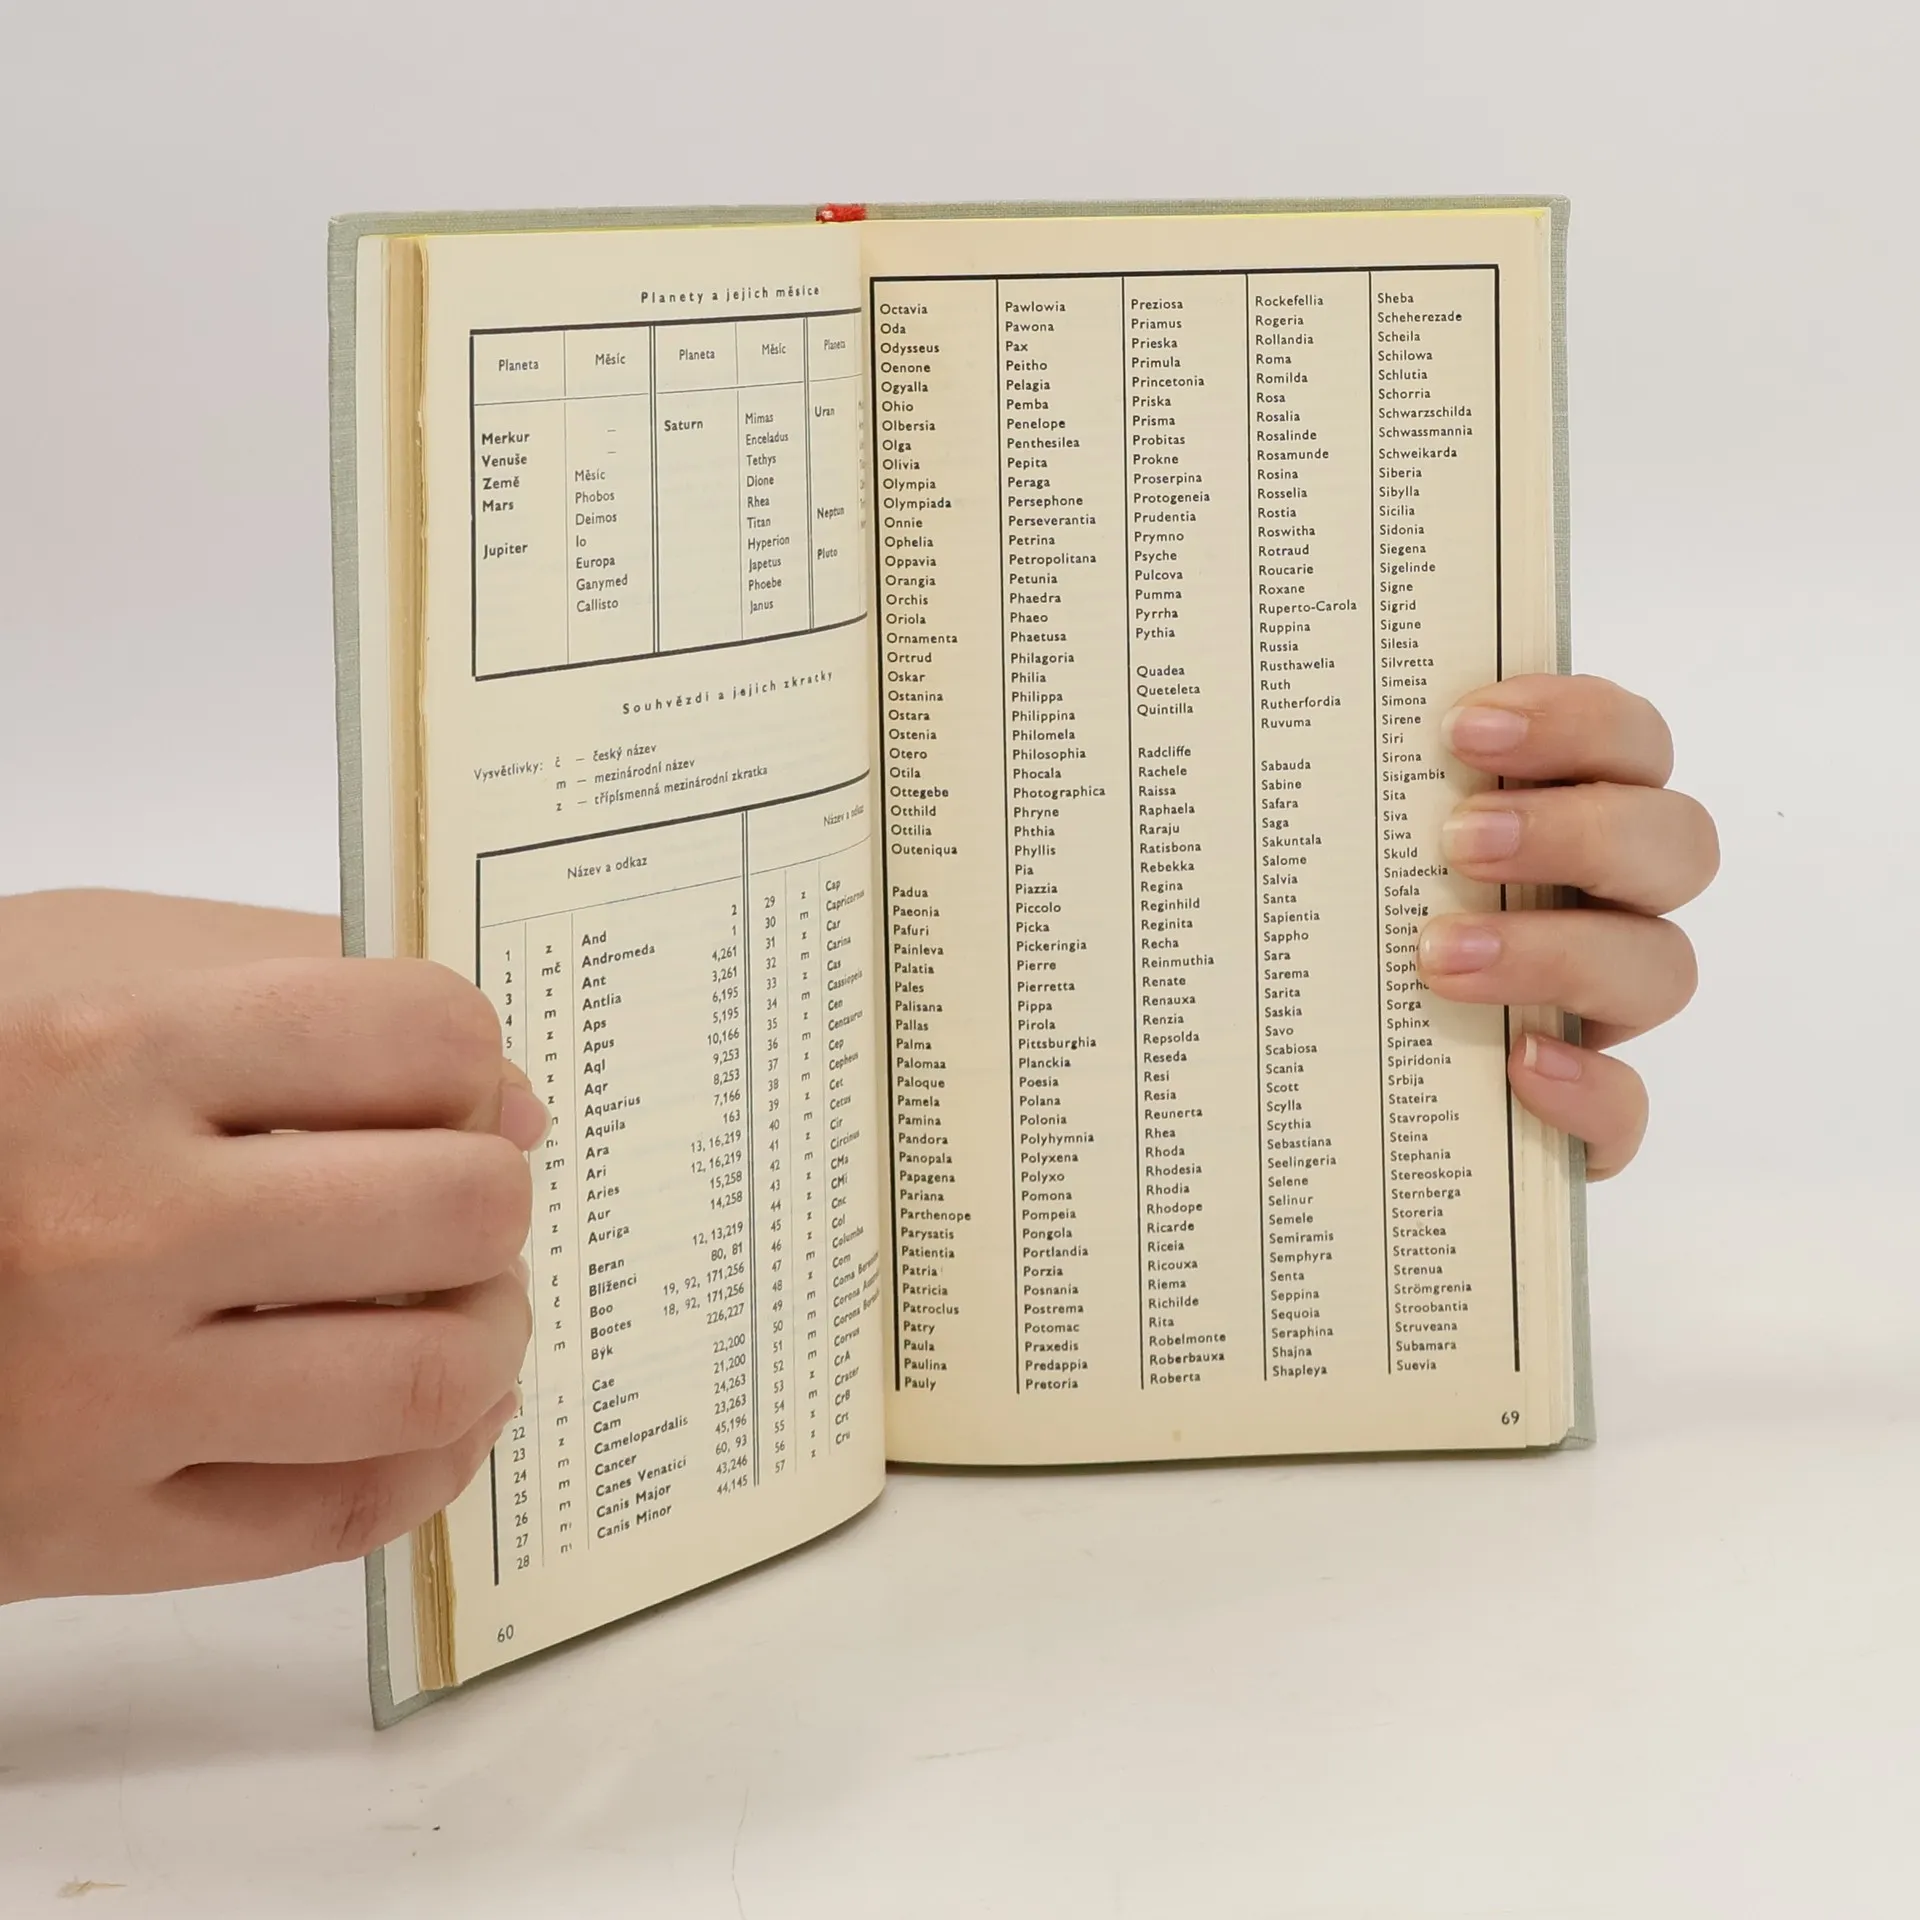 Planety a jejich měsíce
Planeta Měsíc
Merkur –
Venuše –
Země Měsíc
Mars Phobos
Deimos
Jupiter Io
Europa
Ganymed
Callisto
Planeta Měsíc
Saturn Mimas
Enceladus
Tethys
Dione
Rhea
Titan
Hyperion
Japetus
Phoebe
Janus
Planeta
Uran
Neptun
Pluto
Souhvězdí a jejich zkratky
Vysvětlivky: č — český název
m — mezinárodní název
z — třípísmenná mezinárodní zkratka
Název a odkaz
1 z And 2
2 mč Andromeda 1
3 z Ant 4,261
4 m Antlia 3,261
5 z Aps 6,195
m Apus 5,195
z Aql 10,166
z Aqr 9,253
Aquarius 8,253
Aquila 7,166
zm Ara 163
z Ari 13,16,219
m Aries 12,16,219
z Aur 15,258
m Auriga 14,258
č Beran 12,13,219
č Blíženci 80, 81
z Boo 19, 92, 171,256
m Bootes 18, 92, 171,256
Býk 226,227
z Cae 22,200
m Caelum 21,200
z Cam 24,263
m Camelopardalis 23,263
m Cancer 45,196
m Canes Venatici 60, 93
Canis Major 43,246
Canis Minor 44,145
22
23
24
25
26
27
28
Název a odkaz
29 z Cap
30 m Capricornus
31 z Car
32 m Carina
33 z Cas
34 m Cassiopeia
35 z Cen
36 m Centaurus
37 z Cep
38 m Cepheus
39 z Cet
40 m Cetus
41 z Cir
42 m Circinus
43 z CMa
44 z CMi
45 z Cnc
46 z Col
47 m Columba
48 z Com
49 m Coma
50 m Corona
51 m Corona
52 m Corvus
53 z CrA
54 m Crater
55 z CrB
56 z Crt
57 z Cru
60
Octavia
Oda
Odysseus
Oenone
Ogyalla
Ohio
Olbersia
Olga
Olivia
Olympia
Olympiada
Onnie
Ophelia
Oppavia
Orangia
Orchis
Oriola
Ornamenta
Ortrud
Oskar
Ostanina
Ostara
Ostenia
Otero
Otila
Ottegebe
Otthild
Ottilia
Outeniqua
Padua
Paeonia
Pafuri
Painleva
Palatia
Pales
Palisana
Pallas
Palma
Palomaa
Paloque
Pamela
Pamina
Pandora
Panopala
Papagena
Pariana
Parthenope
Parysatis
Patientia
Patria
Patricia
Patroclus
Patry
Paula
Paulina
Pauly
Pawlowia
Pawona
Pax
Peitho
Pelagia
Pemba
Penelope
Penthesilea
Pepita
Peraga
Persephone
Perseverantia
Petrina
Petropolitana
Petunia
Phaedra
Phaeo
Phaetusa
Philagoria
Philia
Philippa
Philippina
Philomela
Philosophia
Phocala
Photographica
Phryne
Phthia
Phyllis
Pia
Piazzia
Piccolo
Picka
Pickeringia
Pierre
Pierretta
Pippa
Pirola
Pittsburghia
Planckia
Poesia
Polana
Polonia
Polyhymnia
Polyxena
Polyxo
Pomona
Pompeia
Pongola
Portlandia
Porzia
Posnania
Postrema
Potomac
Praxedis
Predappia
Pretoria
Preziosa
Priamus
Prieska
Primula
Princetonia
Priska
Prisma
Probitas
Prokne
Proserpina
Protogeneia
Prudentia
Prymno
Psyche
Pulcova
Pumma
Pyrrha
Pythia
Quadea
Queteleta
Quintilla
Radcliffe
Rachele
Raissa
Raphaela
Raraju
Ratisbona
Rebekka
Regina
Reginhild
Reginita
Recha
Reinmuthia
Renate
Renauxa
Renzia
Repsolda
Reseda
Resi
Resia
Reunerta
Rhea
Rhoda
Rhodesia
Rhodia
Rhodope
Ricarde
Riceia
Ricouxa
Riema
Richilde
Rita
Robelmonte
Roberbauxa
Roberta
Rockefellia
Rogeria
Rollandia
Roma
Romilda
Rosa
Rosalia
Rosalinde
Rosamunde
Rosina
Rosselia
Rostia
Roswitha
Rotraud
Roucarie
Roxane
Ruperto-Carola
Ruppina
Russia
Rusthawelia
Ruth
Rutherfordia
Ruvuma
Sabauda
Sabine
Safara
Saga
Sakuntala
Salome
Salvia
Santa
Sapientia
Sappho
Sara
Sarema
Sarita
Saskia
Savo
Scabiosa
Scania
Scott
Scylla
Scythia
Sebastiana
Seelingeria
Selene
Selinur
Semele
Semiramis
Semphyra
Senta
Seppina
Sequoia
Seraphina
Shajna
Shapleya
Sheba
Scheherezade
Scheila
Schilowa
Schlutia
Schorria
Schwarzschilda
Schwassmannia
Schweikarda
Siberia
Sibylla
Sicilia
Sidonia
Siegena
Sigelinde
Signe
Sigrid
Sigune
Silesia
Silvretta
Simeisa
Simona
Sirene
Siri
Sirona
Sisigambis
Sita
Siva
Siwa
Skuld
Sniadeckia
Sofala
Solvejg
Sonja
Sorga
Sphinx
Spiraea
Spiridonia
Srbija
Stateira
Stavropolis
Steina
Stephania
Stereoskopia
Sternberga
Storeria
Strackea
Strattonia
Strenua
Strömgrenia
Stroobantia
Struveana
Subamara
Suevia
69